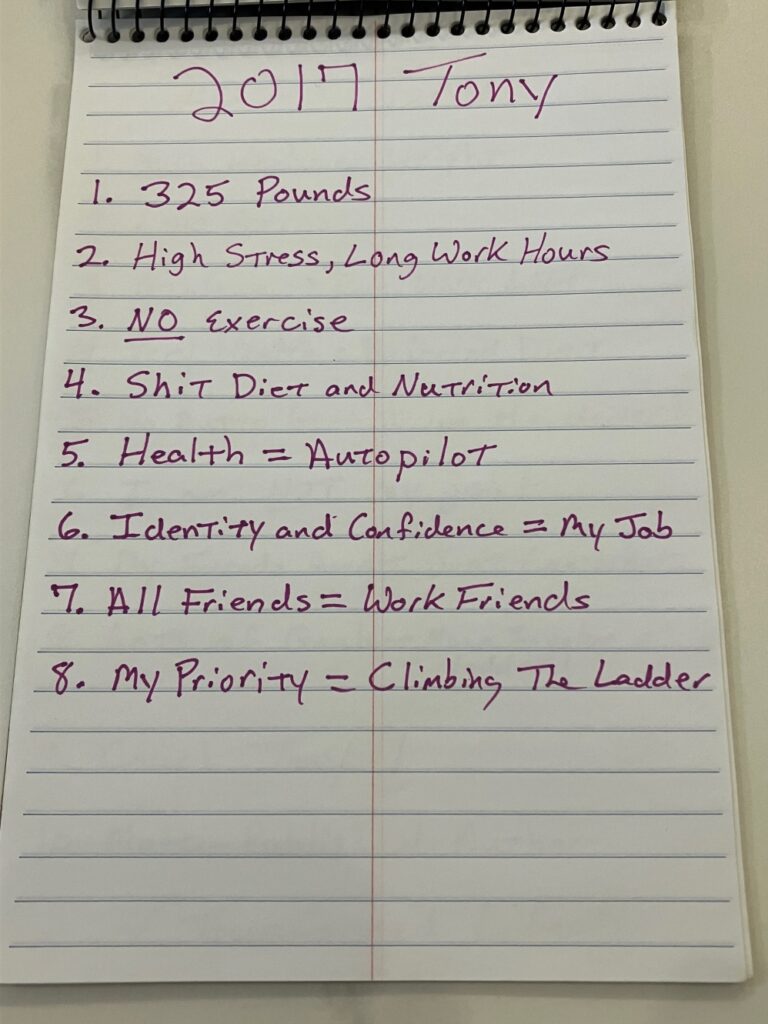 2017 Tony
1. 325 Pounds
2. High Stress, Long Work Hours
3. NO Exercise
4. Shit Diet and Nutrition
5. Health = Autopilot
6. Identity and Confidence = My Job
7. All Friends = Work Friends
8. My Priority = Climbing The Ladder